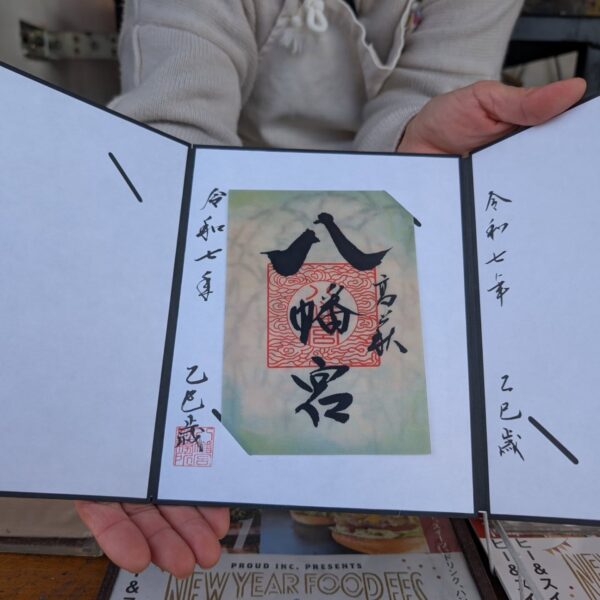 令和七年
乙巳歳
八幡宮
高萩
令和七年
乙巳歳
PROUD INC. PRESENTS
NEW YEAR FOOD FES